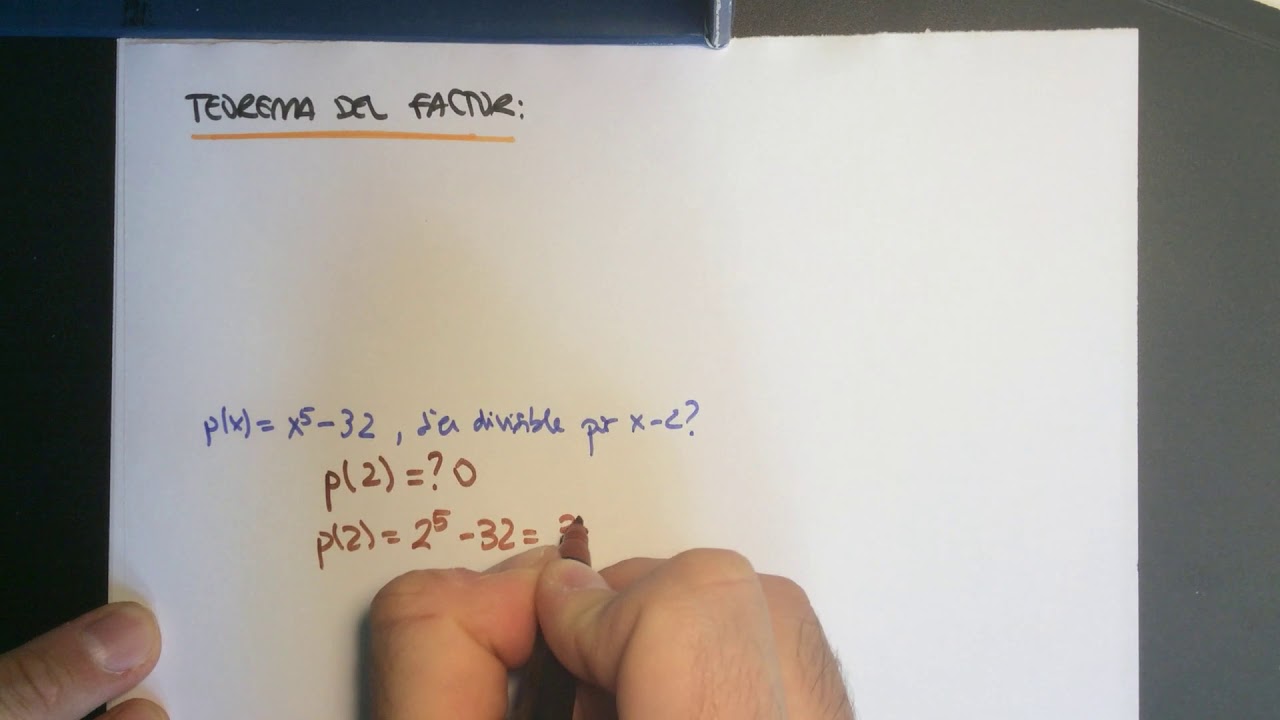 TEOREMA DEL FACTOR:
p(x) = x⁵ - 32 , ¿es divisible por x - 2?
p(2) =? 0
p(2) = 2⁵ - 32 = 3